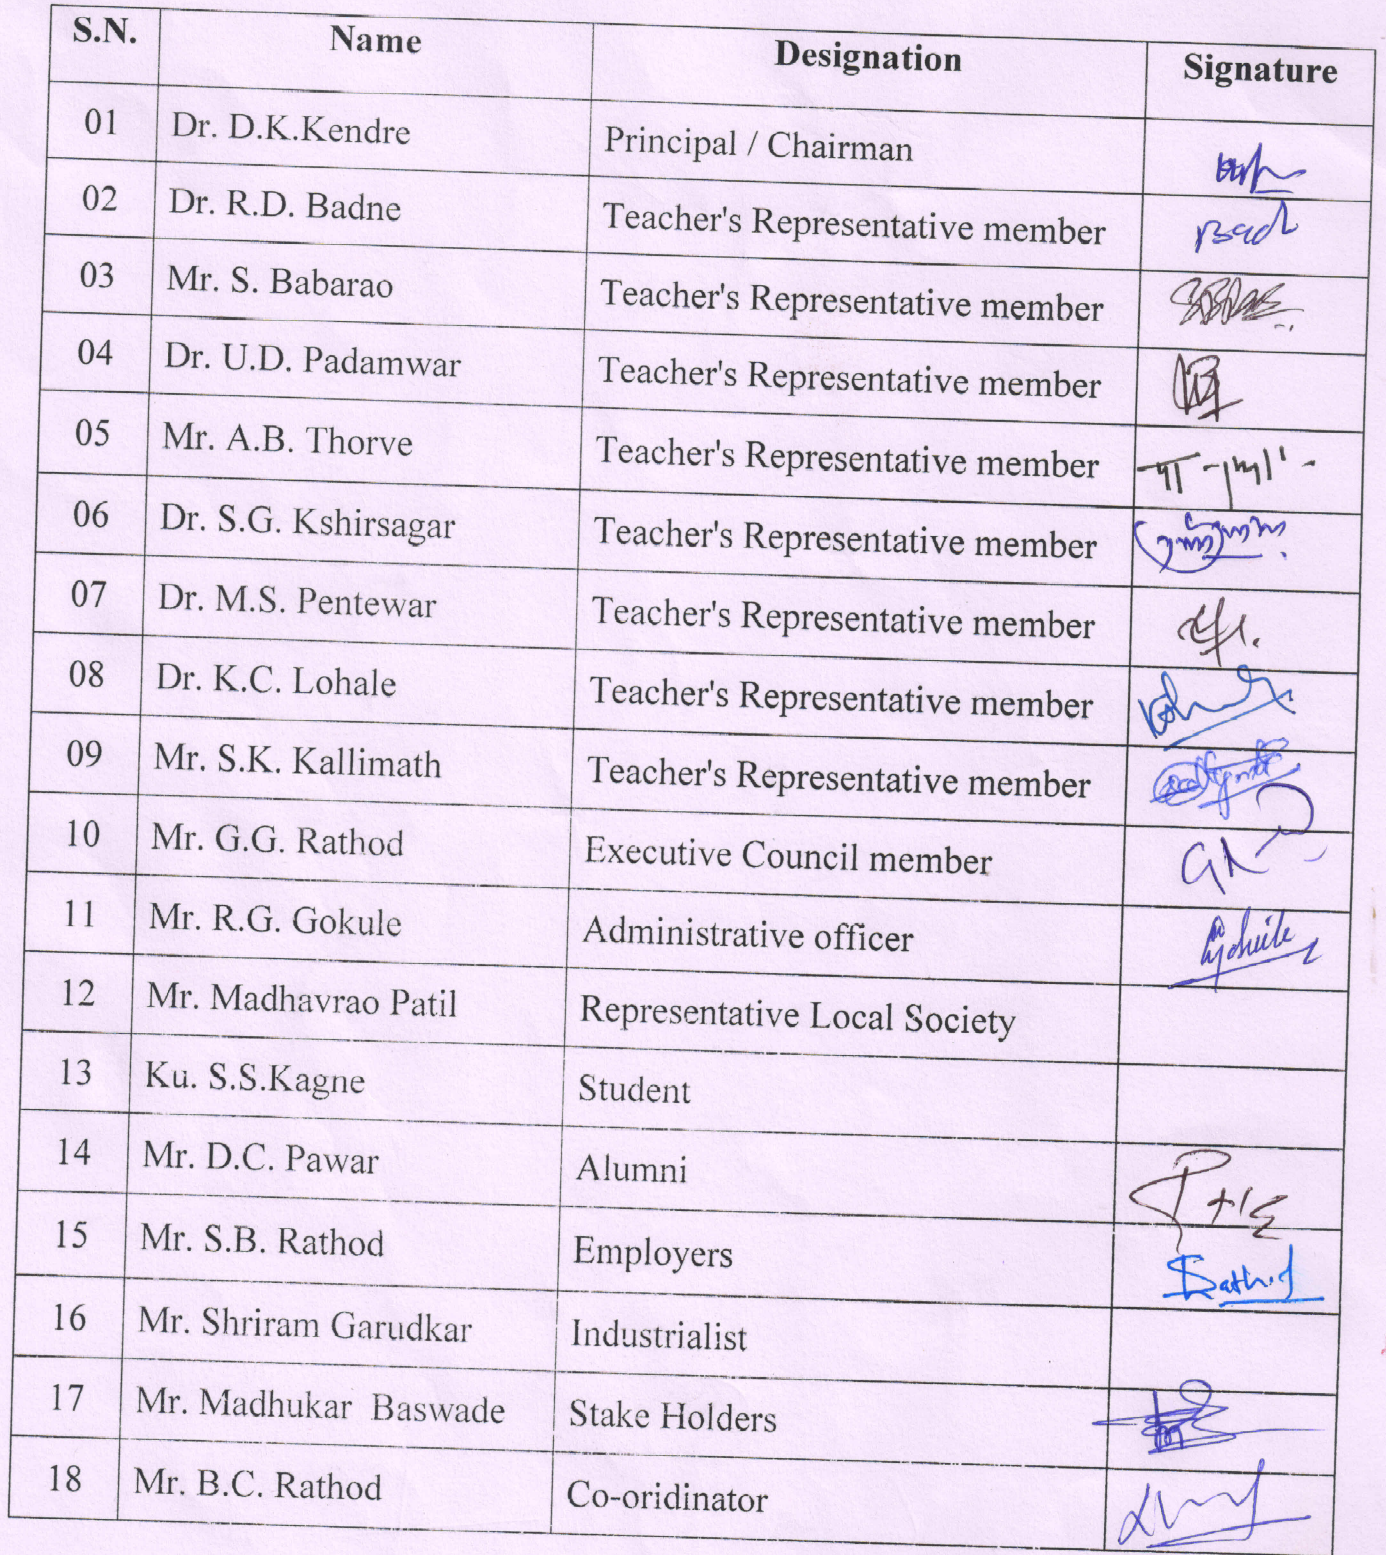 S.N. Name Designation Signature
01 Dr. D.K.Kendre Principal / Chairman
02 Dr. R.D. Badne Teacher's Representative member
03 Mr. S. Babarao Teacher's Representative member
04 Dr. U.D. Padamwar Teacher's Representative member
05 Mr. A.B. Thorve Teacher's Representative member
06 Dr. S.G. Kshirsagar Teacher's Representative member
07 Dr. M.S. Pentewar Teacher's Representative member
08 Dr. K.C. Lohale Teacher's Representative member
09 Mr. S.K. Kallimath Teacher's Representative member
10 Mr. G.G. Rathod Executive Council member
11 Mr. R.G. Gokule Administrative officer
12 Mr. Madhavrao Patil Representative Local Society
13 Ku. S.S.Kagne Student
14 Mr. D.C. Pawar Alumni
15 Mr. S.B. Rathod Employers
16 Mr. Shriram Garudkar Industrialist
17 Mr. Madhukar Baswade Stake Holders
18 Mr. B.C. Rathod Co-oridinator